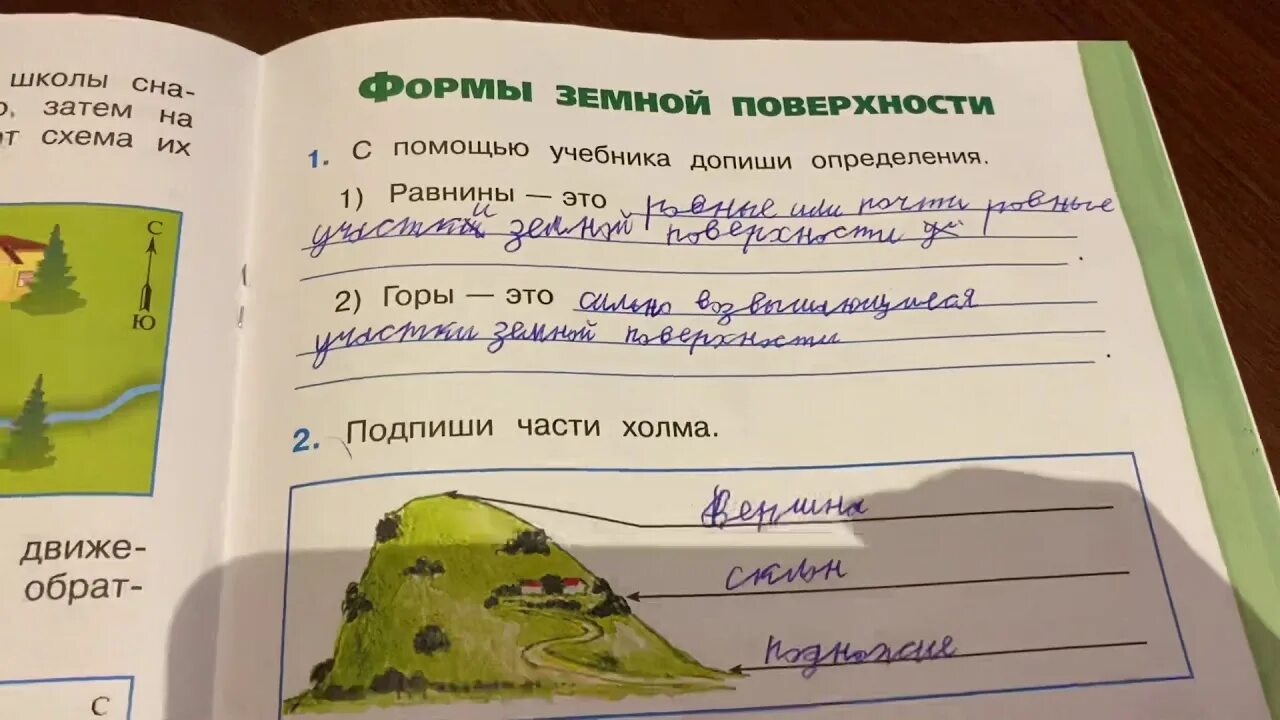 школы сна-
о, затем на
от схема их
С
Ю
движе-
обрат-
С
ФОРМЫ ЗЕМНОЙ ПОВЕРХНОСТИ
1. С помощью учебника допиши определения.
1) Равнины — это ровные или почти ровные
участки земной поверхности
2) Горы — это сильно возвышающиеся
участки земной поверхности
2. Подпиши части холма.
Вершина
склон
подножие